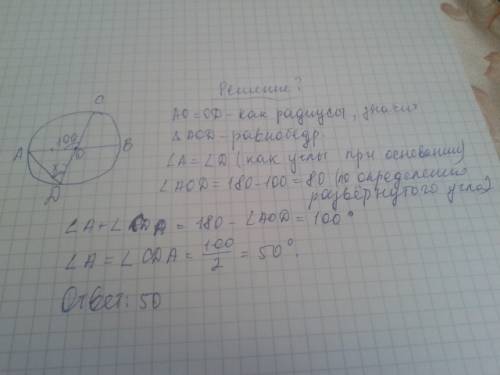 Решение:
C
AO = OD - как радиусы, значит
100
A
O
B
D
?
△AOD - равнобедр.
∠A = ∠D (как углы при основании)
∠AOD = 180 - 100 = 80 (по определению
развёрнутого угла)
∠A + ∠ODA = 180 - ∠AOD = 100°
∠A = ∠ODA = 100/2 = 50°.
Ответ: 50